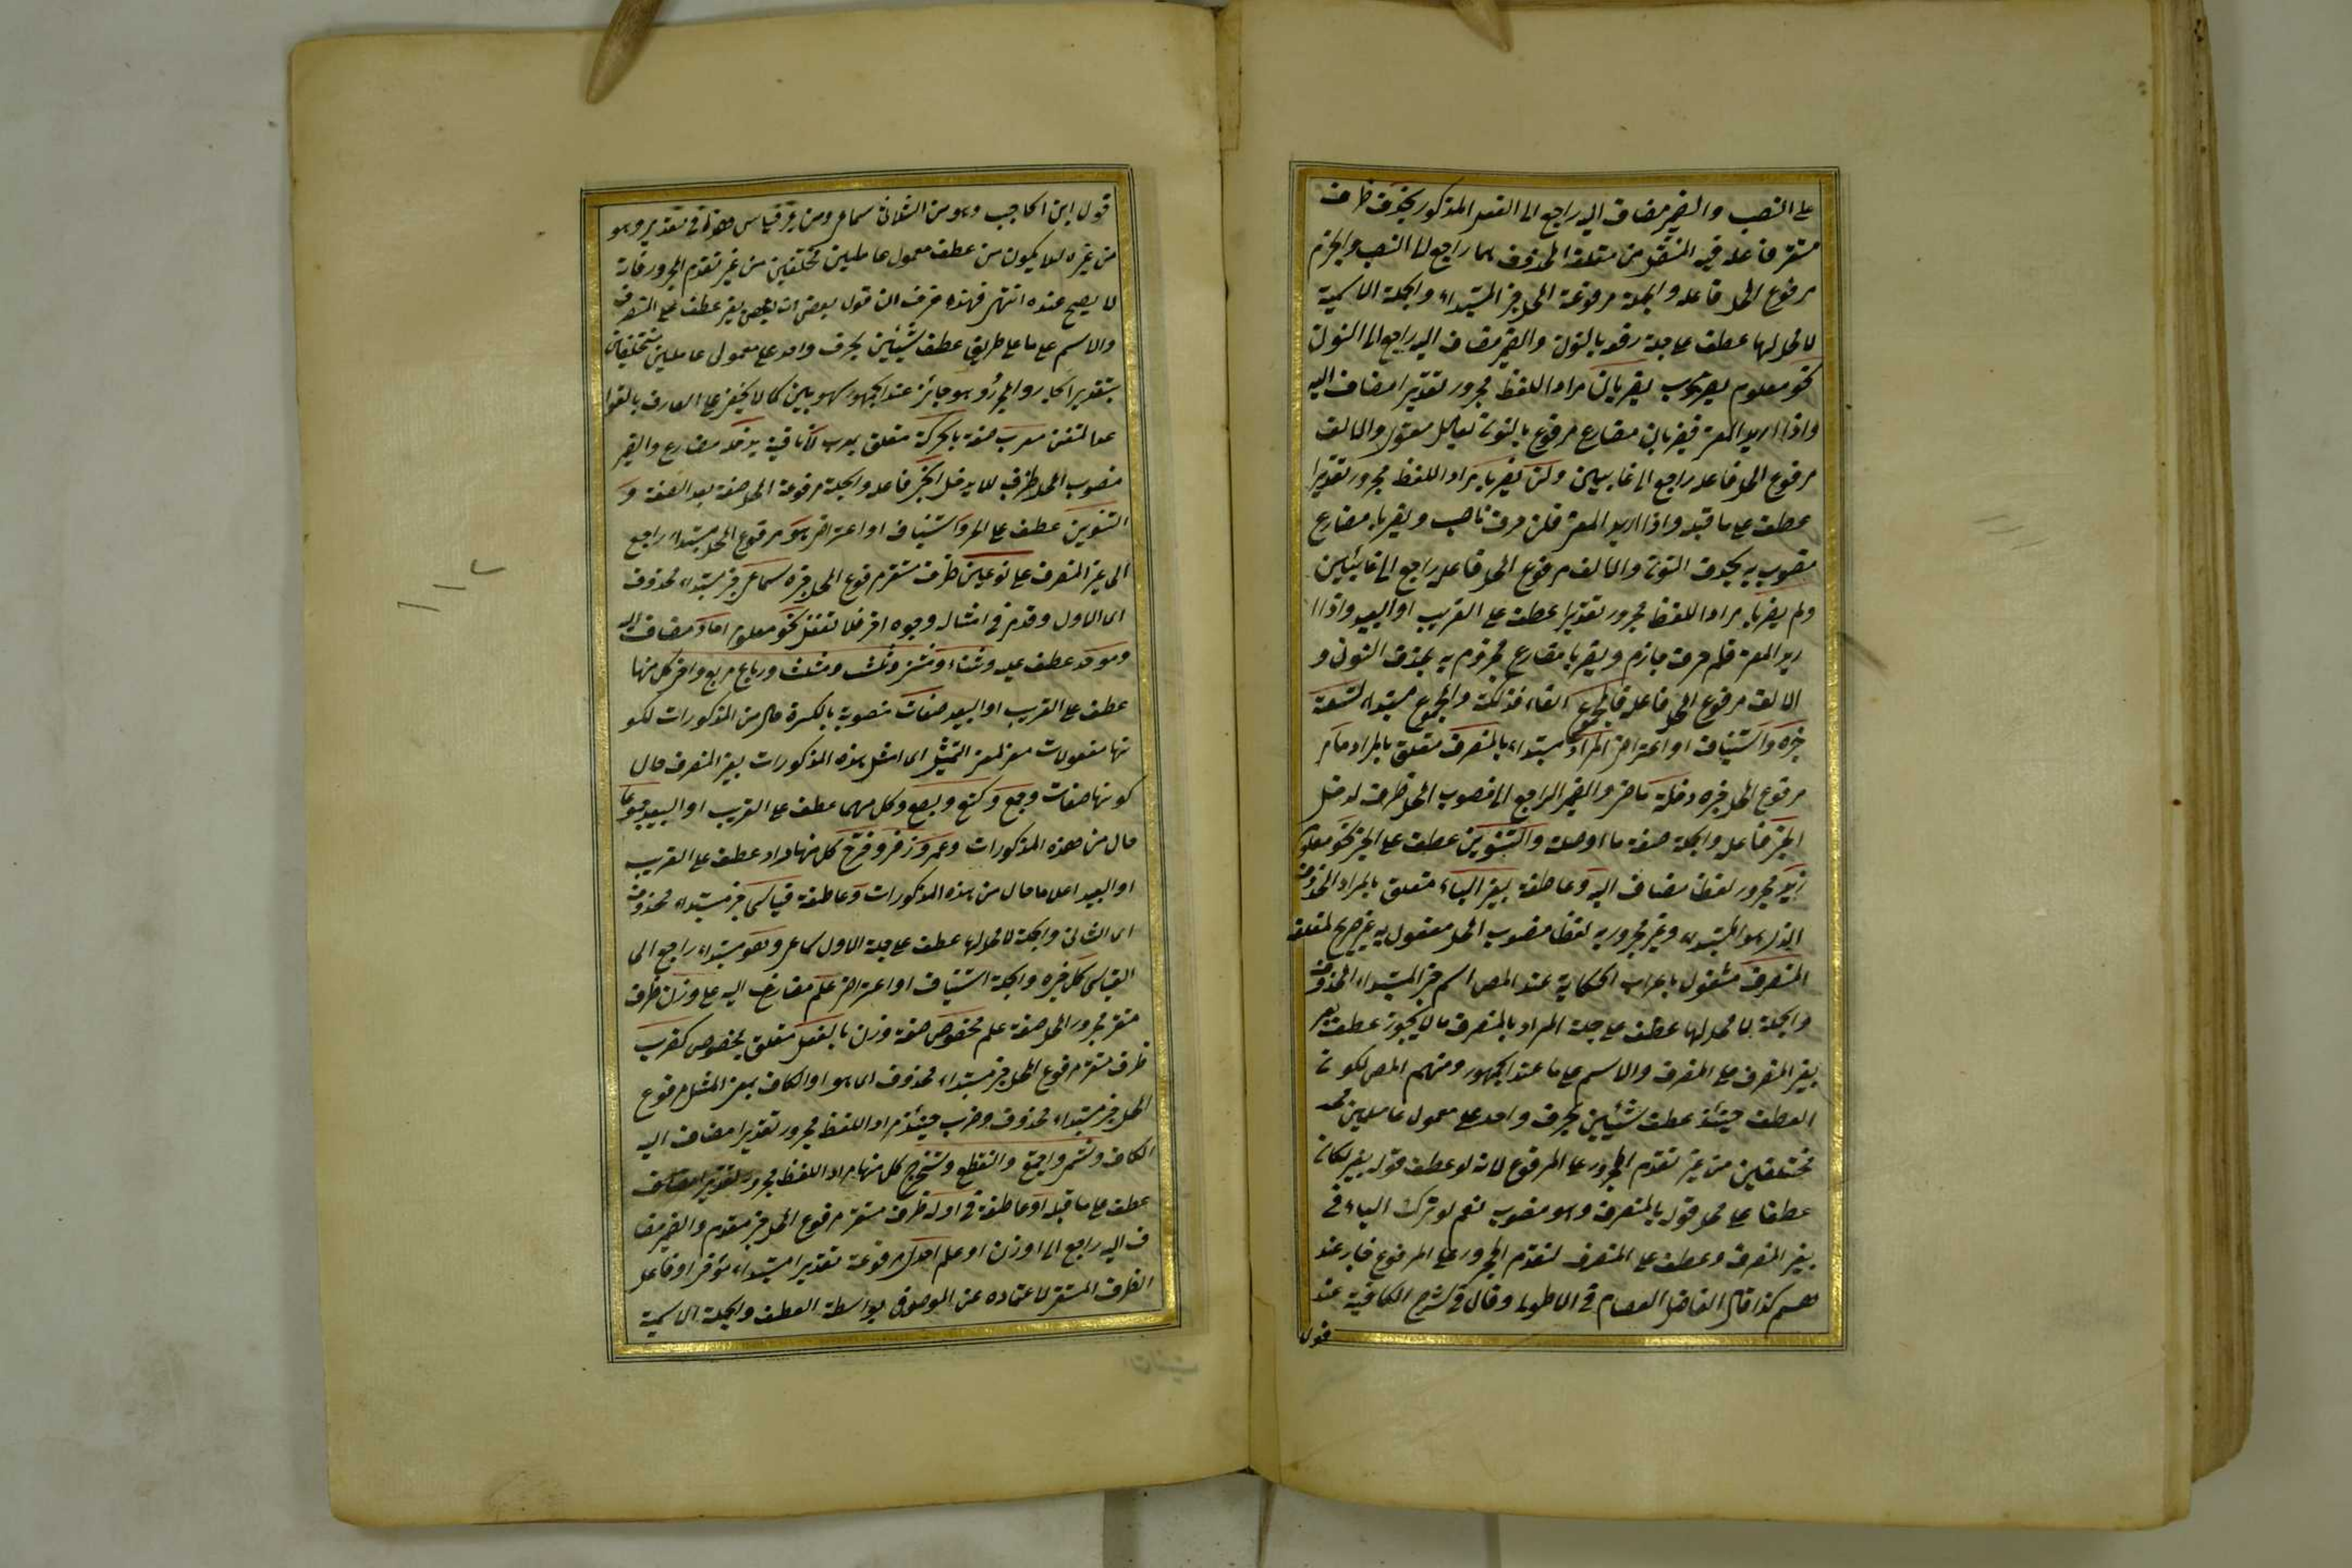 على النصب والضمير مضاف اليه راجع الى الفعل المذكور بحذف ظرف
مستقر فاعله فيه المنتقل من متعلقه المحذوف هما راجع لى النصب والجزم
مرفوع المحل فاعله والجملة مرفوعة المحل خبر المبتداء والجملة الاسمية
لا محل لها عطف على جملة رفعه بالنون والضمير مضاف اليه راجع الى النون
نحو معلوم يضربان مراد اللفظ مجرور تقديرا مضاف اليه
واذا اريد المعنى فيضربان مضارع مرفوع بالنون بعامل معنوى والالف
مرفوع المحل فاعله راجع الى غائبين ولن يضربا مراد اللفظ مجرور تقديرا
عطف على ما قبله واذا اريد المعنى فلن حرف ناصب ويضربا مضارع
منصوب به بحذف النون والالف مرفوع المحل فاعله راجع الى غائبين
ولم يضربا مراد اللفظ مجرور تقديرا عطف على القريب او البعيد واذا ا
ريد المعنى فلم حرف جازم ويضربا مضارع مجزوم به بحذف النون و
الالف مرفوع المحل فاعله فالمجموع الفاء فذلكة والمجموع مبتداء تسعة
خبره واستيناف او اعتراض المراد مبتداء بالمنصرف متعلق بالمراد ما
مرفوع المحل خبره دخله ماض والضمير الراجع الى منصوب المحل ظرف لدخل
الجر فاعله والجملة صفة ما او صلة والتنوين عطف على الجر نحو معلوم
زيد مجرور لفظا مضاف اليه وعاطفة بغير الباء متعلق بالمراد المحذوف
الذى هو المبتداء وغير مجرور به لفظا منصوب المحل مفعول به غير صريح لمتعلقه
المنصرف مشغول باعراب الحكاية عند المص اسم خبر المبتداء المحذوف
والجملة لا محل لها عطف على جملة المراد بالمنصرف ما لا يجوز عطف
بغير المنصرف على المنصرف والاسم على ما عند الجمهور ومنهم المص لكون
العطف حينئذ عطف شيئين بحرف واحد على معمول عاملين
مختلفين من غير تقدم المجرور على المرفوع لانه لو عطف قوله بغير لكان
عطفا على محل قوله بالمنصرف وهو منصوب نعم لو ترك الباء فى
بغير المنصرف وعطف على المنصرف لتقدم المجرور على المرفوع فجاز عند
هم كذا قال الفاضل العصام فى الاطول وقال فى شرح الكافية عند
قول
قول ابن الحاجب وهو من الثلاثى سماع ومن غيره قياس هذا فى تقدير وهو
من غيره لئلا يكون من عطف معمول عاملين مختلفين من غير تقدم المجرور فانه
لا يصح عنده انتهى فهذا عرف ان قول بعض ان بغير عطف على المنصرف
والاسم على ما على طريق عطف شيئين بحرف واحد على معمولى عاملين مختلفين
بتقدير الجار والمجرور وهو جائز عند الجمهور سهو بين كما لا يخفى على العارف بالقوا
عد المتقن معرب صفة بالحركة متعلق بمعرب لا نافية يدخله مضارع والضمير
منصوب المحل ظرف للا يدخل الجر فاعله والجملة مرفوعة المحل صفة بعد الصفة و
التنوين عطف على الجر واستيناف او اعتراض هو مرفوع المحل مبتداء راجع
الى غير المنصرف على نوعين ظرف مستقر مرفوع المحل خبره سماعى خبر مبتداء محذوف
اى الاول وقد مر فى امثاله وجوه اخر فلا تغفل نحو معلوم احاد مضاف اليه
وموحد عطف عليه وثناء ومثنى وثلث ومثلث ورباع ومربع واخر كل منها
عطف على القريب او البعيد صفات منصوبة بالكسرة حال من المذكورات لكو
نها مفعولات معنى لمعنى التمثيل اى امثل هذه المذكورات بغير المنصرف حال
كونها صفات وجمع وكتع وبصع وكل منها عطف على القريب او البعيد جموعا
حال من هذه المذكورات وعمر وزفر وقزح كل منها مراد عطف على القريب
او البعيد اعلاما حال من هذه المذكورات وعاطفة قياسى خبر مبتداء محذوف
اى الثانى والجملة لا محل لها عطف على جملة الاول سماعى وهو مبتداء راجع الى
القياسى كل خبره والجملة استيناف او اعتراض علم مضاف اليه على وزن ظرف
مستقر مجرور المحل صفة علم مخصوص صفة وزن بالفعل متعلق بمخصوص كضرب
ظرف مستقر مرفوع المحل خبر مبتداء محذوف اى هو او الكاف بمعنى المثل مرفوع
المحل خبر مبتداء محذوف وضرب حينئذ مراد اللفظ مجرور تقديرا مضاف اليه
الكاف وشمر واجتمع وانقطع واستخرج كل منها مراد اللفظ مجرور تقديرا
عطف على ما قبله او عاطفة فى اوله ظرف مستقر مرفوع المحل خبر مقدم والضمير مضا
ف اليه راجع الى وزن او علم احدى مرفوعة تقديرا مبتداء مؤخر او فاعل
الظرف المستقر لاعتماده على الموصوف بواسطة العطف والجملة الاسمية
١١٢